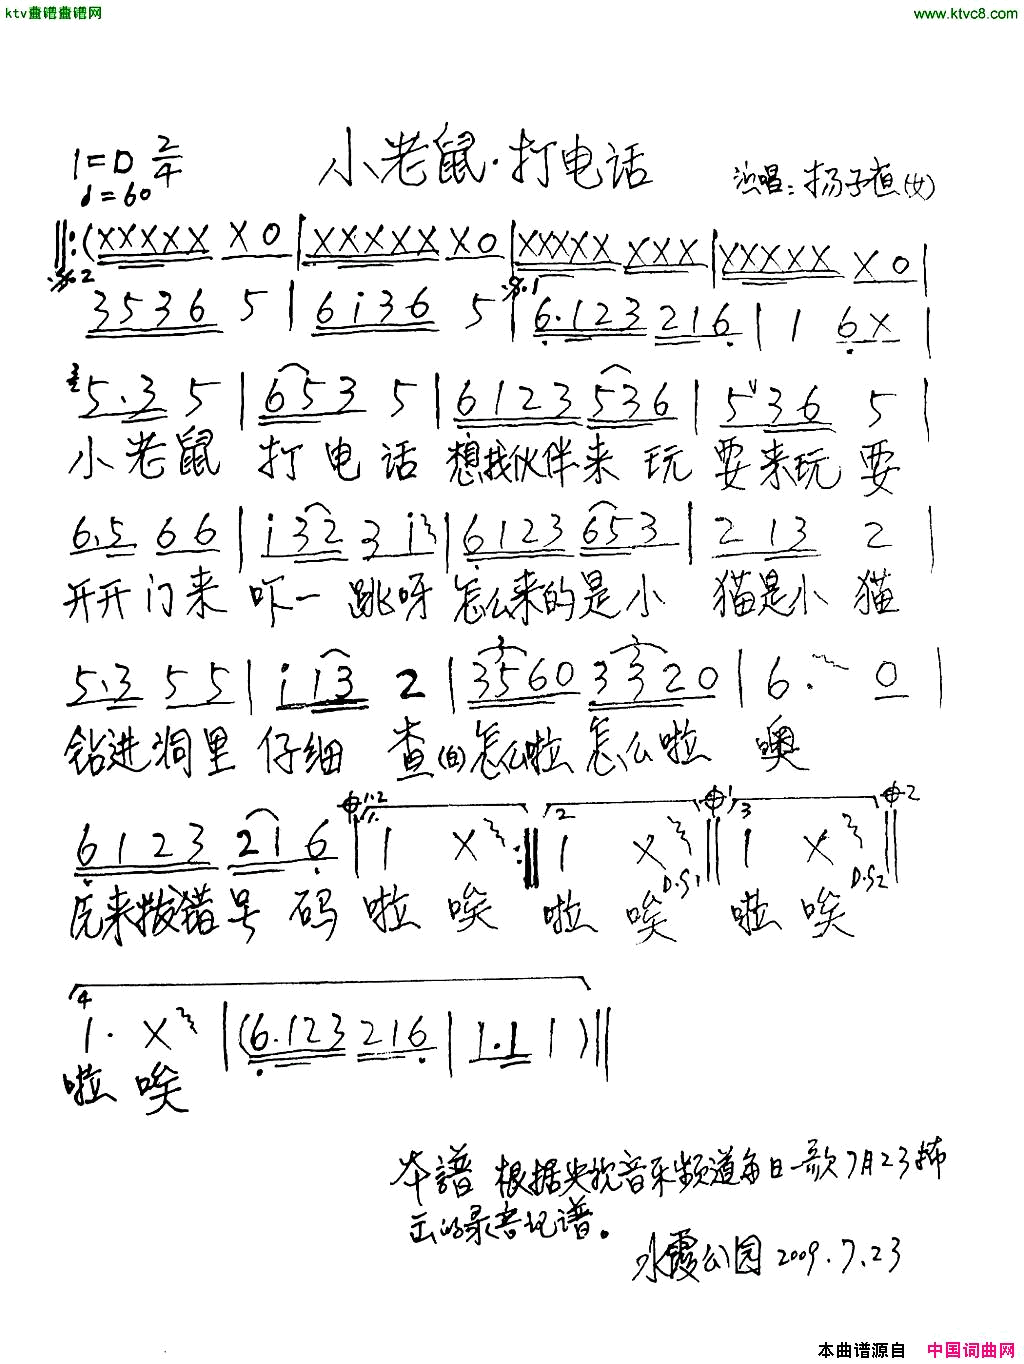 ktv查谱查谱网
www.ktvc8.com
1=D 2/4
♩=60
小老鼠·打电话
演唱：杨子(女)
‖:(XXXXX X 0 | XXXXX X 0 | XXXXX XXX | XXXXX X 0 |
𝄋.2
3536 5 | 6i36 5 | 6.123 216 | 1 6X |
𝄋.1
5.3 5 | 653 5 | 6123 536 | 5 36 5 |
小老鼠 打电话 想找伙伴来 玩 耍来玩 耍
6.5 66 | i32 3 i | 6123 653 | 2 13 2 |
开开门来 吓一跳呀 怎么来的是小 猫是小猫
5.3 55 | i i3 2 | 3560 3320 | 6. 0 |
钻进洞里 仔细 查(白)怎么啦 怎么啦 噢
6123 216 | 1 X :‖ 1 X ‖ 1 X ‖
1.2 1. 2 D.S1 1 3 D.S2 2
来拨错号 码 啦 唉 啦 唉 啦 唉
4
1. X | (6.123 216 | 1.1 1) ‖
啦 唉
本譜根据央视音乐频道每日一歌7月23播
出的录音记谱。
水霞公园 2009.7.23
本曲谱源自 中国词曲网